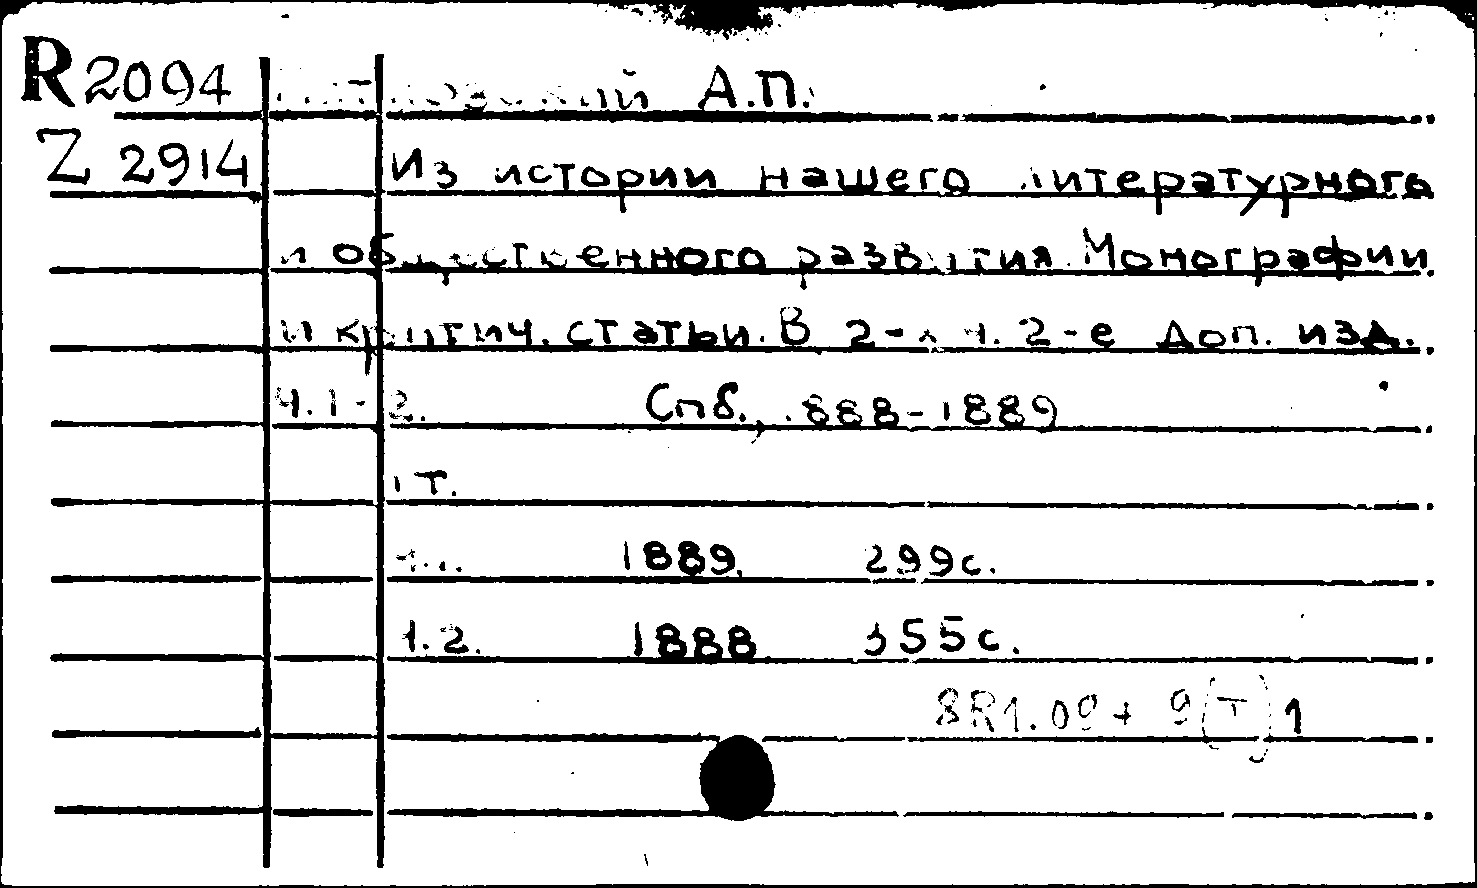 R 2094 Пятковский А.П.
Z 2914 Из истории нашего литературного
и общественного развития. Монографии
и критич. статьи. В 2-х ч. 2-е доп. изд.
Ч. 1-2. Спб., 1888-1889
1 т.
Ч.1. 1889. 299 с.
Ч.2. 1888 355 с.
8R1.09 + 9(T)1